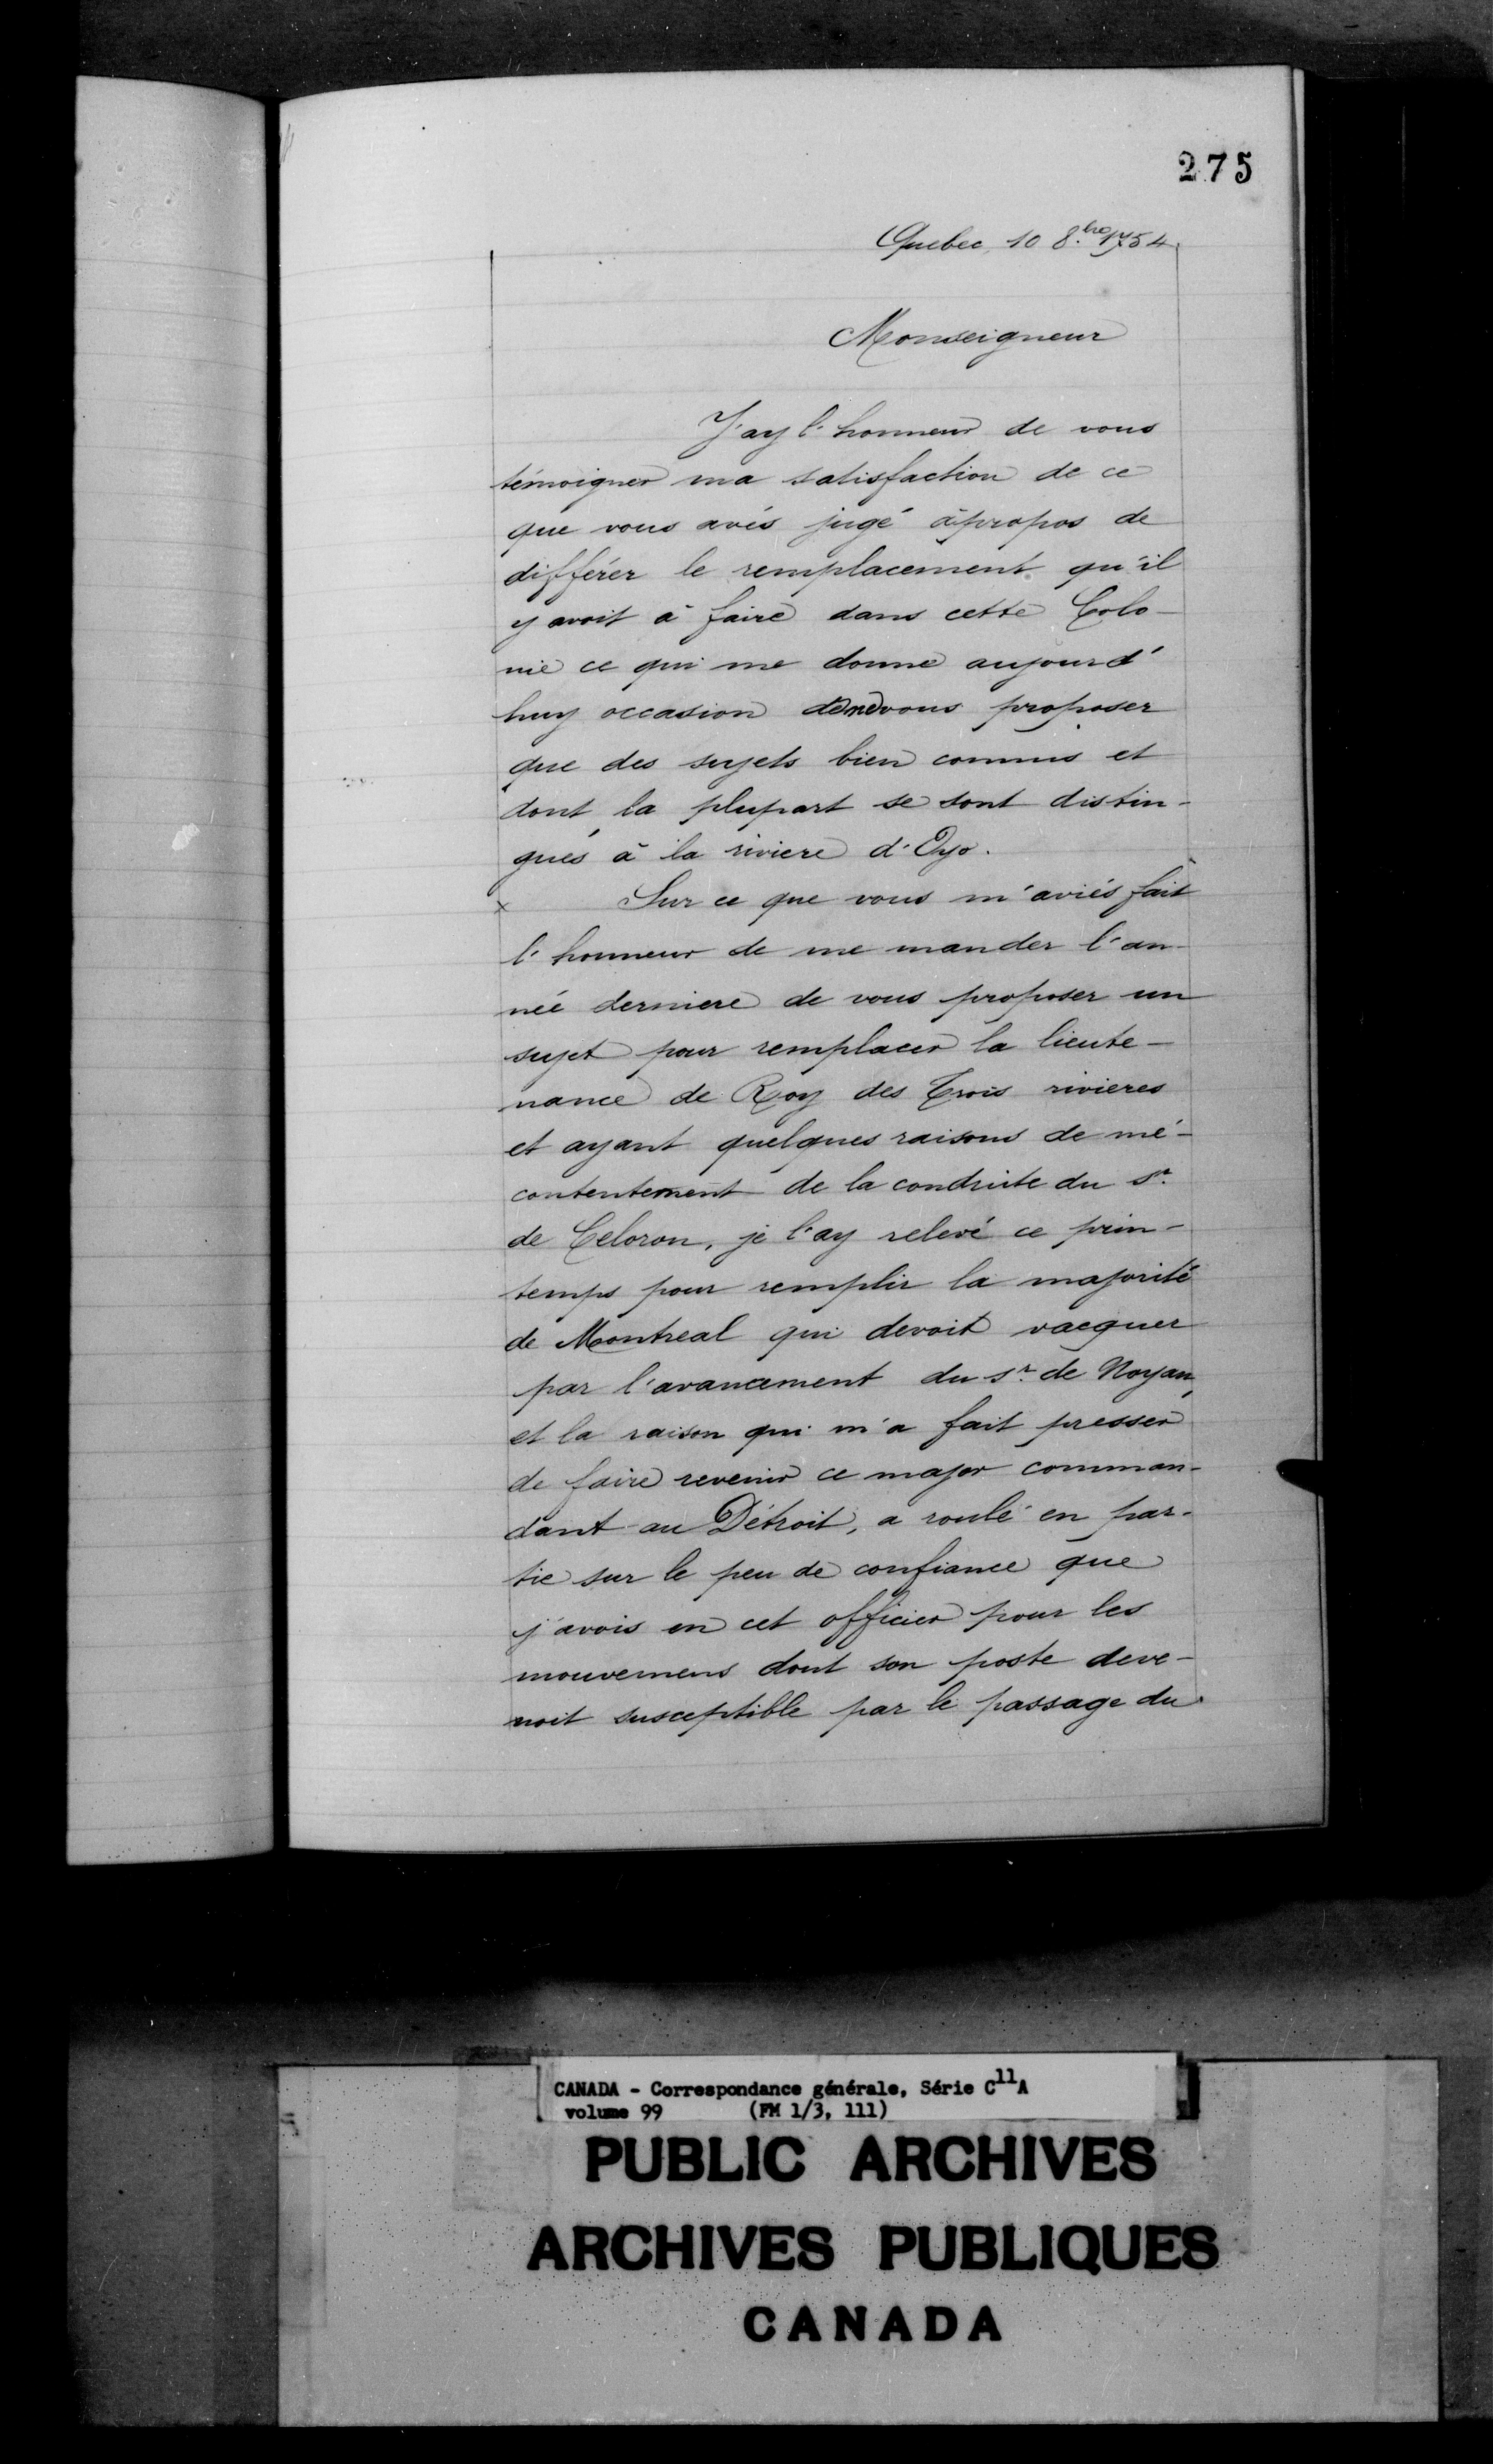 275
Quebec, 10 8.bre 1754
Monseigneur
J'ay l'honneur de vous
témoigner ma satisfaction de ce
que vous avés jugé àpropos de
différer le remplacement qu'il
y avoit à faire dans cette Colo-
nie ce qui me donne aujourd'
huy occasion de ne vous proposer
que des sujets bien connus et
dont la plupart se sont distin-
gués à la riviere d'Oyo.
x Sur ce que vous m'aviés fait
l'honneur de me mander l'an-
née derniere de vous proposer un
sujet pour remplacer la lieute-
nance de Roy des Trois rivieres
et ayant quelques raisons de mé-
contentement de la conduite du sr.
de Celoron, je l'ay relevé ce prin-
temps pour remplir la majorité
de Montreal qui devoit vacquer
par l'avancement du sr. de Noyan,
et la raison qui m'a fait presser
de faire revenir ce major comman-
dant au Détroit, a roulé en par-
tie sur le peu de confiance que
j'avois en cet officier pour les
mouvemens dont son poste deve-
noit susceptible par le passage du
CANADA - Correspondance générale, Série C11A
volume 99 (FM 1/3, 111)
PUBLIC ARCHIVES
ARCHIVES PUBLIQUES
CANADA